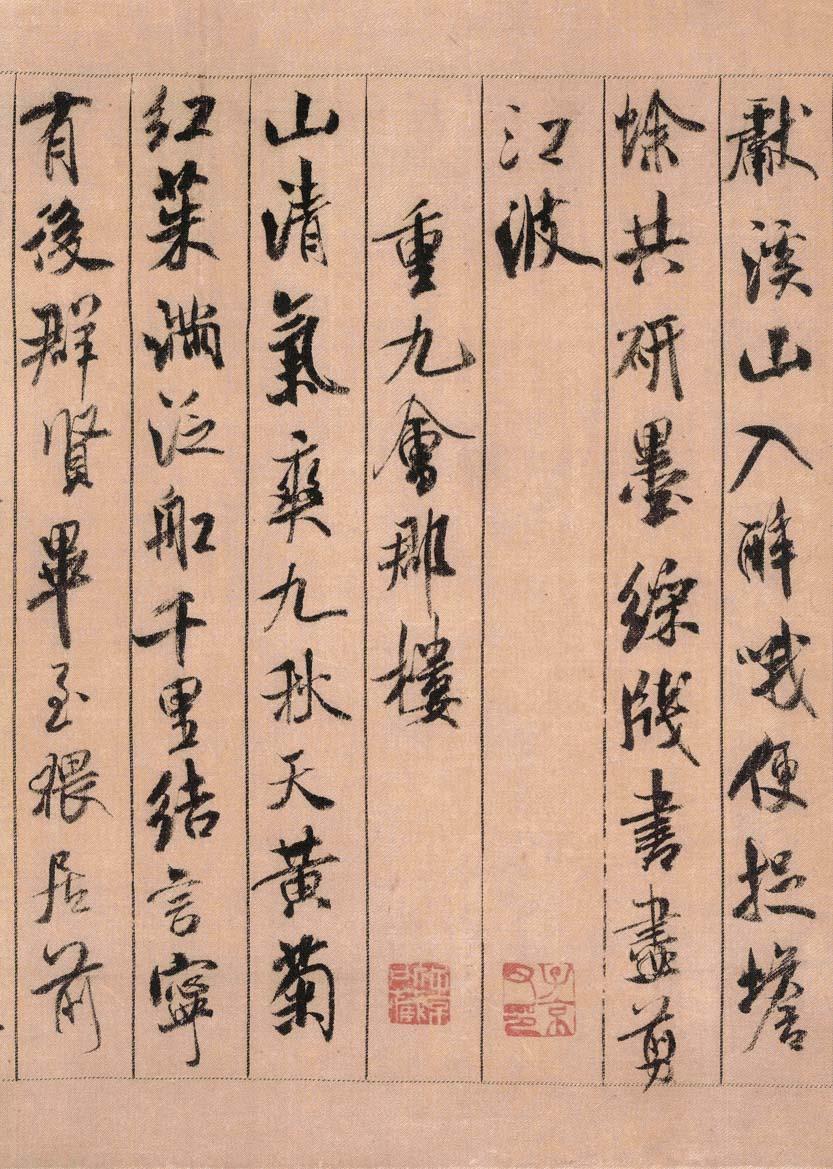 獻溪山入醉哦便捉蟾
蜍共研墨綵牋書盡剪
江波
重九會郡樓
山清氣爽九秋天黃菊
紅茱滿泛船千里結言寧
有後群賢畢至猥居前
子京父印